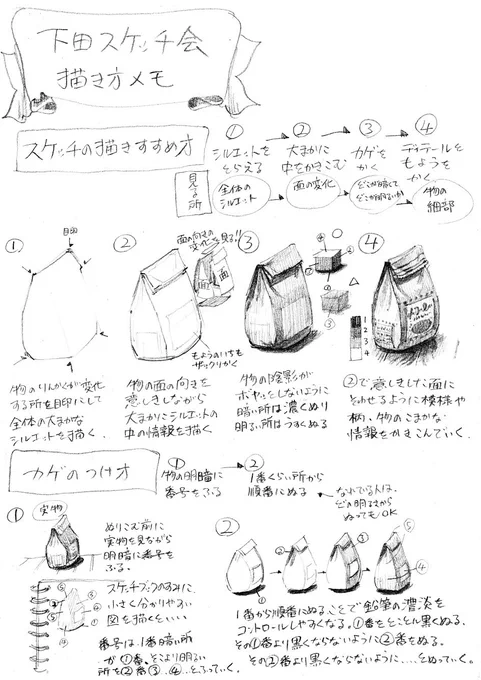 下田スケッチ会
描き方メモ
スケッチの描きすすめ方
① → ② → ③ → ④
シルエットを
とらえる
大まかに
中をかきこむ
カゲを
かく
ディテールと
もようを
かく
見る所
全体の
シルエット
面の変化
どこが暗くて
どこが明るいか
物の
細部
①
目印
物のりんかくが変化
する所を目印にして
全体の大まかな
シルエットを描く
②
面の向きの
変化を見る!!
面
面
もようのいちも
ザックリかく
物の面の向きを
意しきしながら
大まかにシルエットの
中の情報を描く
③
物の陰影が
ボヤッとしないように
暗い所は濃くぬり
明るい所はうすくぬる
④
1
2
3
4
②で意しきした面に
そわせるように模様や
柄、物のこまかな
情報をかきこんでいく。
カゲのつけ方
①
物の明暗に
番号をふる
②
1番くらい所から
順番にぬる
なれている人は、
どの明るさから
ぬってもOK
①
実物
ぬりこむ前に
実物を見ながら
明暗に番号を
ふる。
スケッチブックのすみに、
小さく分かりやすい
図を描くといい
番号は、1番暗い所
が①番、そこより明るい
所を②番③…④…とふっていく。
②
①
②
③
⑤
④
1番から順番にぬることで鉛筆の濃淡を
コントロールしやすくなる。①番をとことん黒くぬる。
その①番より黒くならないように②番をぬる。
その②番より黒くならないように……とぬっていく。